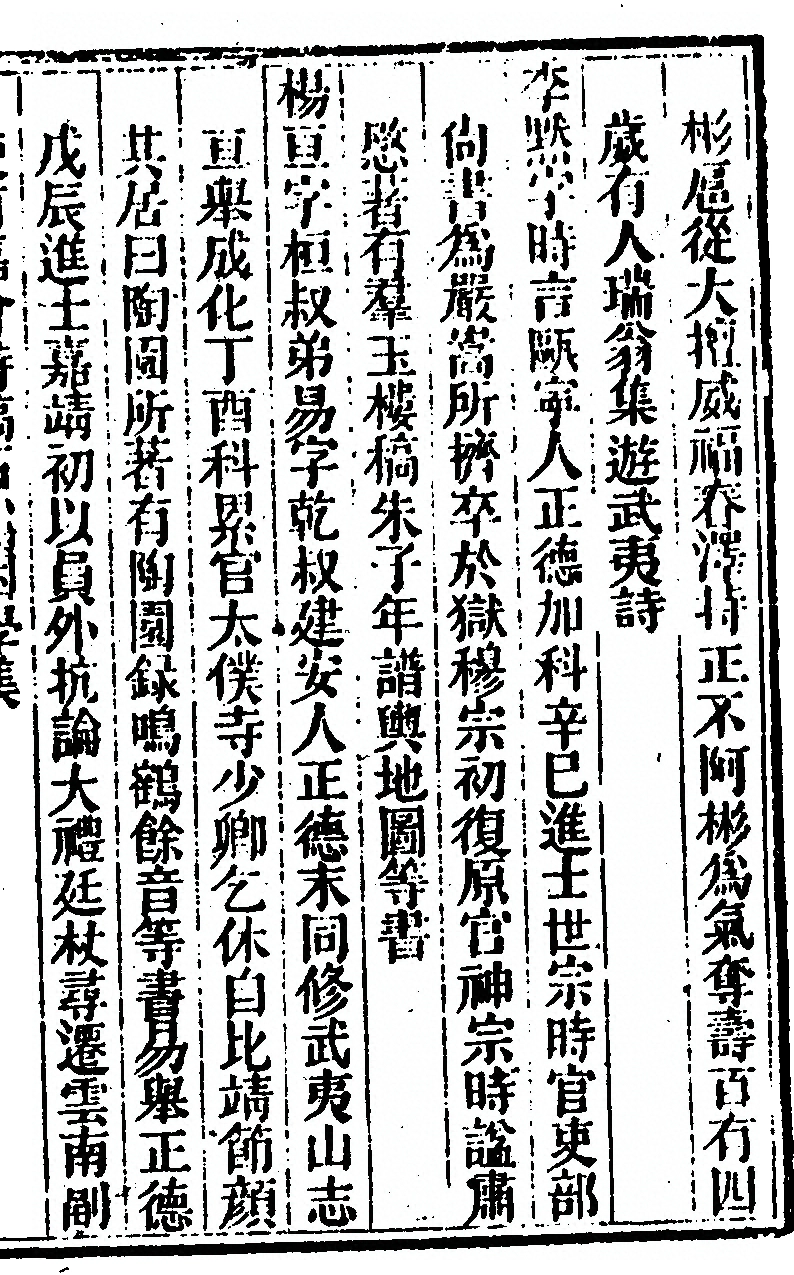 彬扈從大擅威福春澤持正不阿彬為氣奪壽百有四
歲有人瑞翁集遊武夷詩
李默字時言甌寧人正德加科辛巳進士世宗時官吏部
尚書為嚴嵩所擠卒於獄穆宗初復原官神宗時諡肅
愍著有羣玉樓稿朱子年譜輿地圖等書
楊亘字桓叔弟易字乾叔建安人正德末同修武夷山志
亘舉成化丁酉科累官太僕寺少卿乞休自比靖節顏
其居曰陶園所著有陶園錄鳴鶴餘音等書易舉正德
戊辰進士嘉靖初以員外抗論大禮廷杖尋遷雲南副